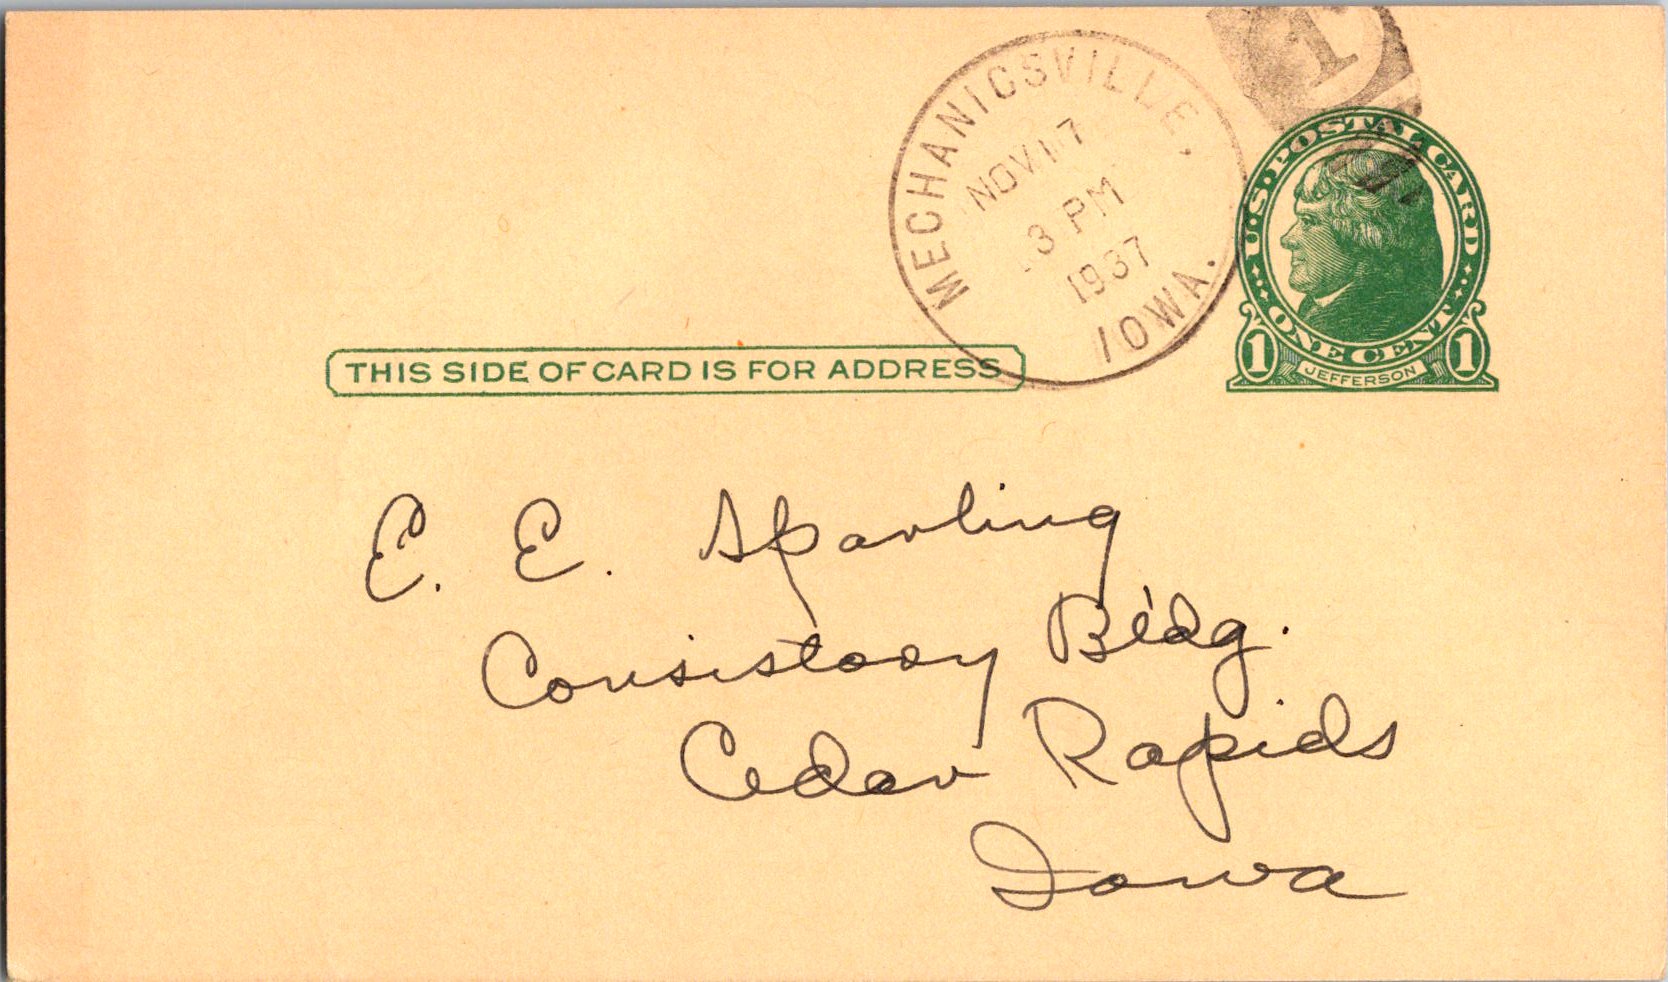 MECHANICSVILLE,
NOV 17
3 PM
1937
IOWA.
1
U.S. POSTAL CARD
ONE CENT
1 JEFFERSON 1
THIS SIDE OF CARD IS FOR ADDRESS
E. E. Sparling
Consistory Bldg.
Cedar Rapids
Iowa